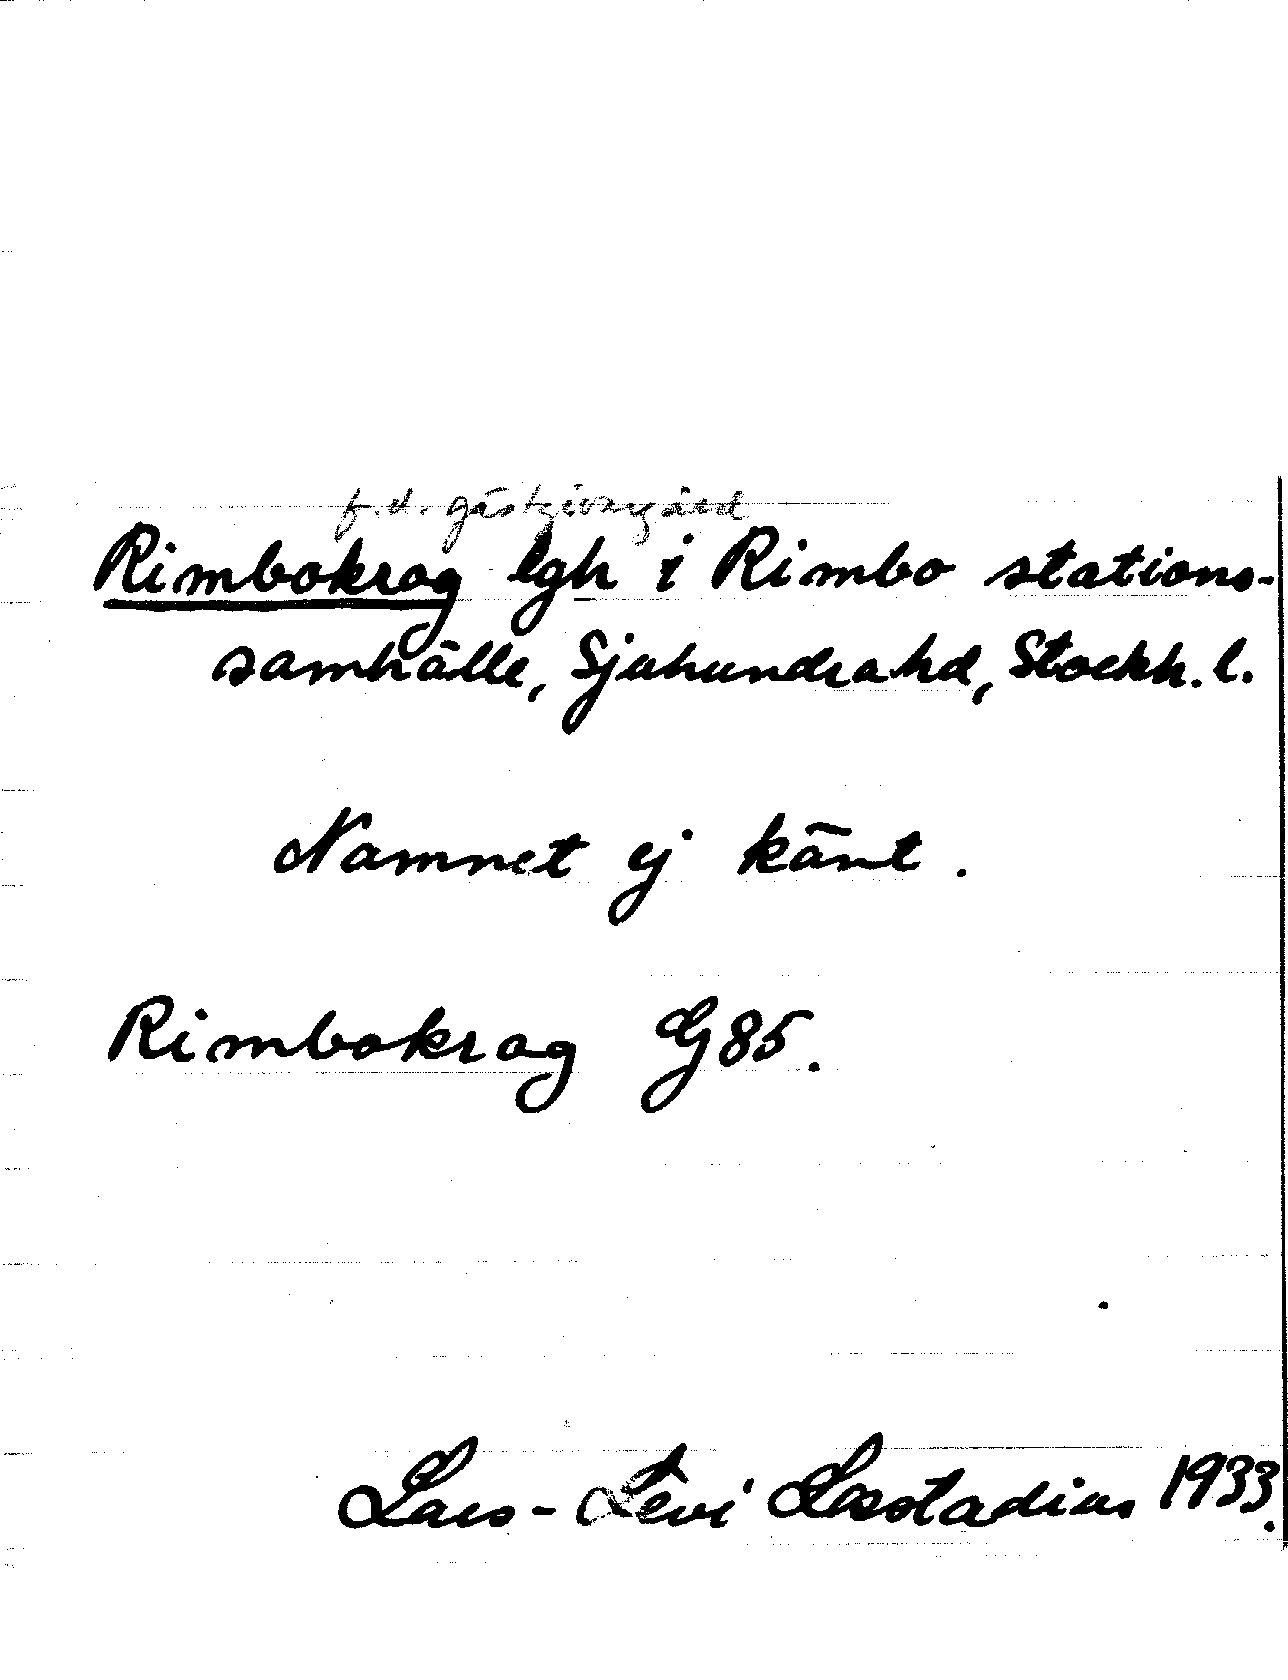 f.d. gästgivaregård
Rimbokrog lgh i Rimbo stations-
samhälle, Sjuhundra hd, Stockh. l.
Namnet ej känt.
Rimbokrog G85.
Lars-Levi Læstadius 1933.